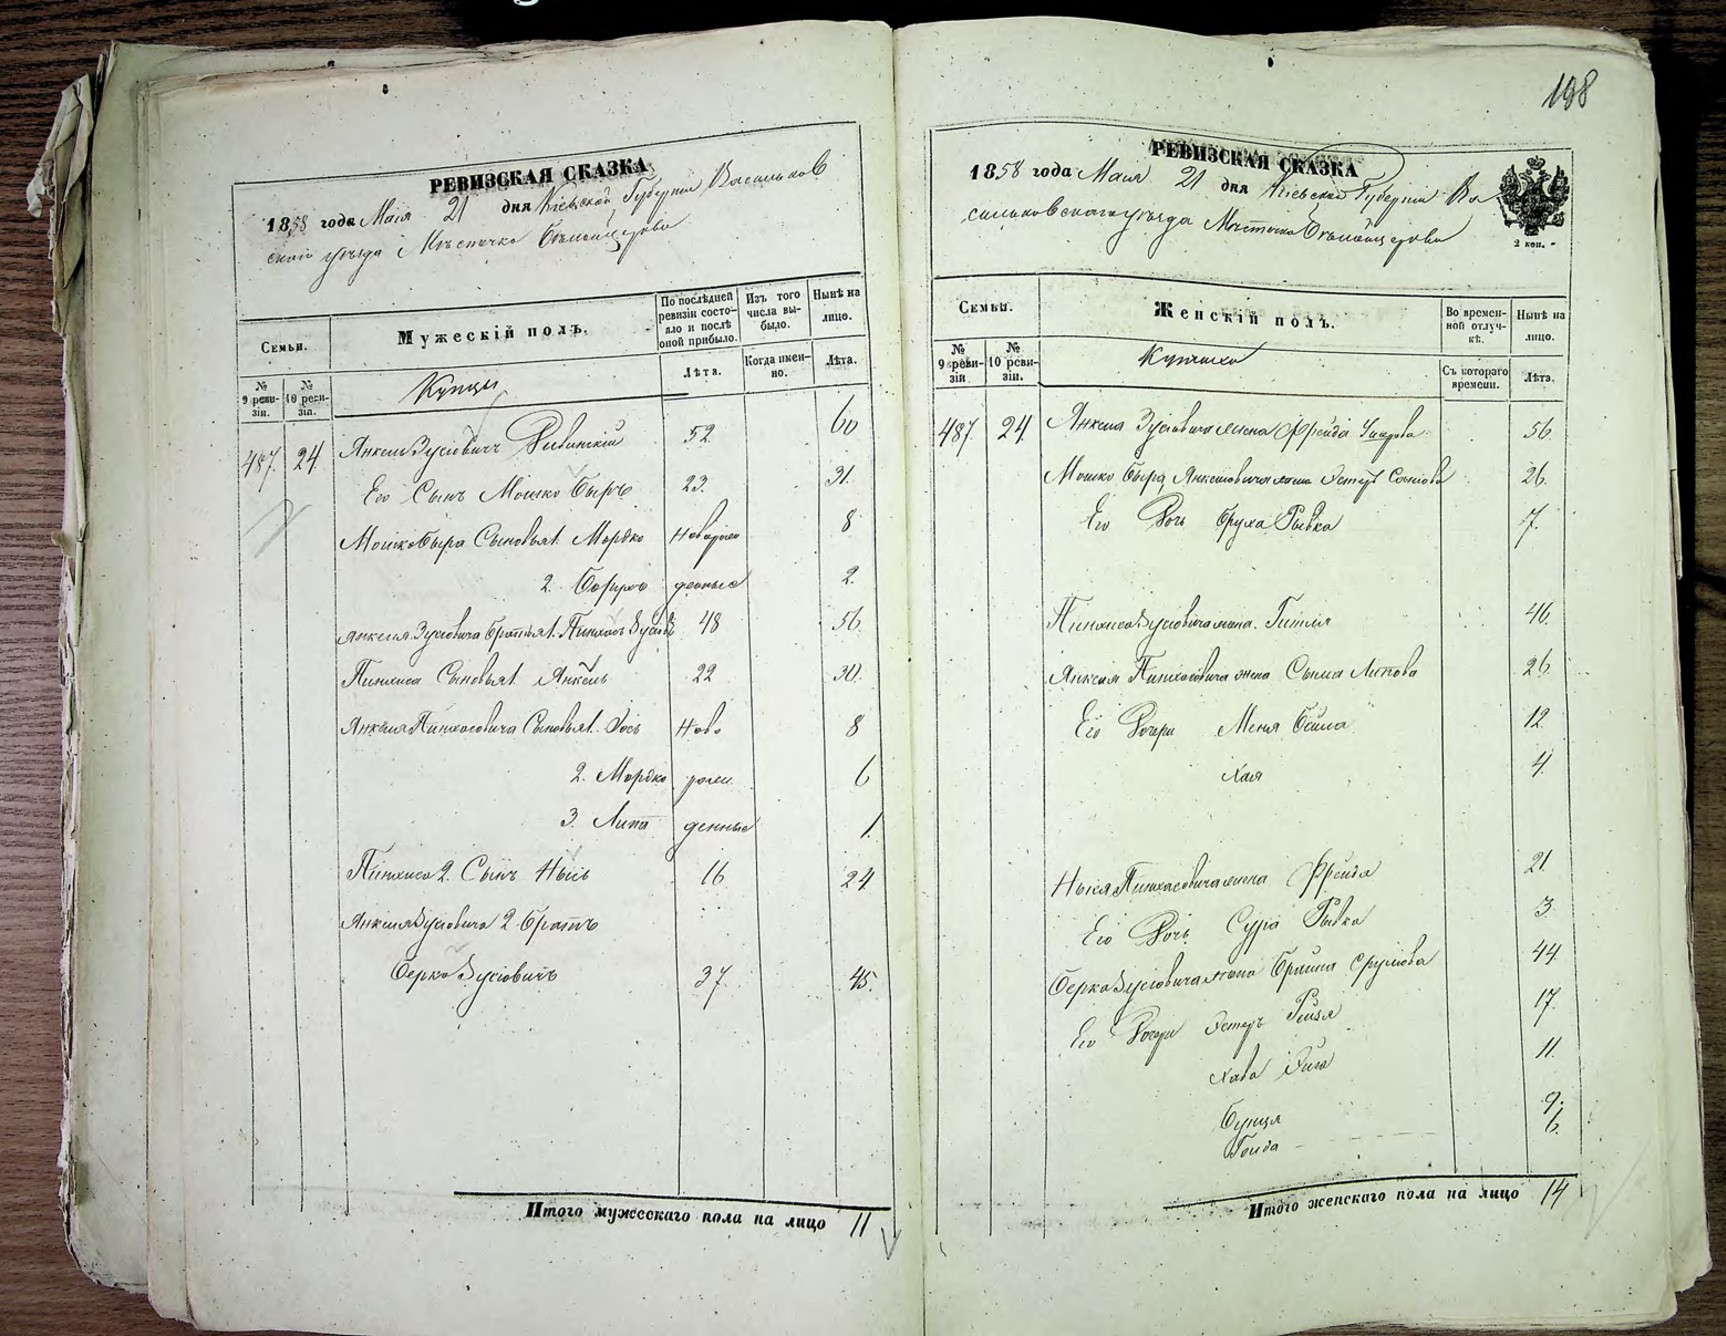 198
РЕВИЗСКАЯ СКАЗКА
1858 года Мая 21 дня Кіевской Губерніи Васильков
ской уѣзда Мѣстечко
Семьи.
Мужескій полъ.
По послѣдней ревизіи состояло и послѣ оной прибыло.
Изъ того числа выбыло.
Нынѣ на лицо.
№ 9 ревизіи.
№ 10 ревизіи.
Купцы
Лѣта.
Когда именно.
Лѣта.
487. 24. Анкель Зусіовичъ 52. 60
Его Сынъ Мошко Быръ 23. 31.
Мошко Быра Сыновья 1. Мордко Новорож 8
2. Борухъ денные 2.
Анкеля Зусіовича братья 1. Пинхасъ Зусіов 48 56.
Пинхаса Сыновья 1. Анкель 22 30.
Анкеля Пинхасовича Сыновья 1. Іось Ново 8
2. Мордко рож 6
3. Липа денные 1.
Пинхаса 2. Сынъ Нысь 16 24
Анкеля Зусіовича 2 братъ
Берко Зусіовичъ 37. 45.
Итого мужескаго пола на лицо 11
РЕВИЗСКАЯ СКАЗКА
1858 года Мая 21 дня Кіевской Губерніи Ва
сильковскаго уѣзда Мѣстечко
2 коп.
Семьи.
Женскій полъ.
Во временной отлучкѣ.
Нынѣ на лицо.
№ 9 ревизіи
№ 10 ревизіи.
Съ котораго времени.
Лѣта.
487. 24. Анкеля Зусіовича жена Фрейда 56.
Мошко Быра Анкелевича жена Эстеръ 26.
Его Дочь Бруха Рывка 7.
Пинхаса Зусіовича жена Гитля 46.
Анкеля Пинхасовича жена Сыма Липова 26.
Его Дочери Меня Бейла 12
Хая 4.
Ныся Пинхасовича жена Фрейда 21.
Его Дочь Сура Рывка 3
Берка Зусіовича жена Брайна Срулова 44.
Его Дочери Эстеръ Рейзя 17.
Хава 11.
Бунця 9.
6.
Итого женскаго пола на лицо 14